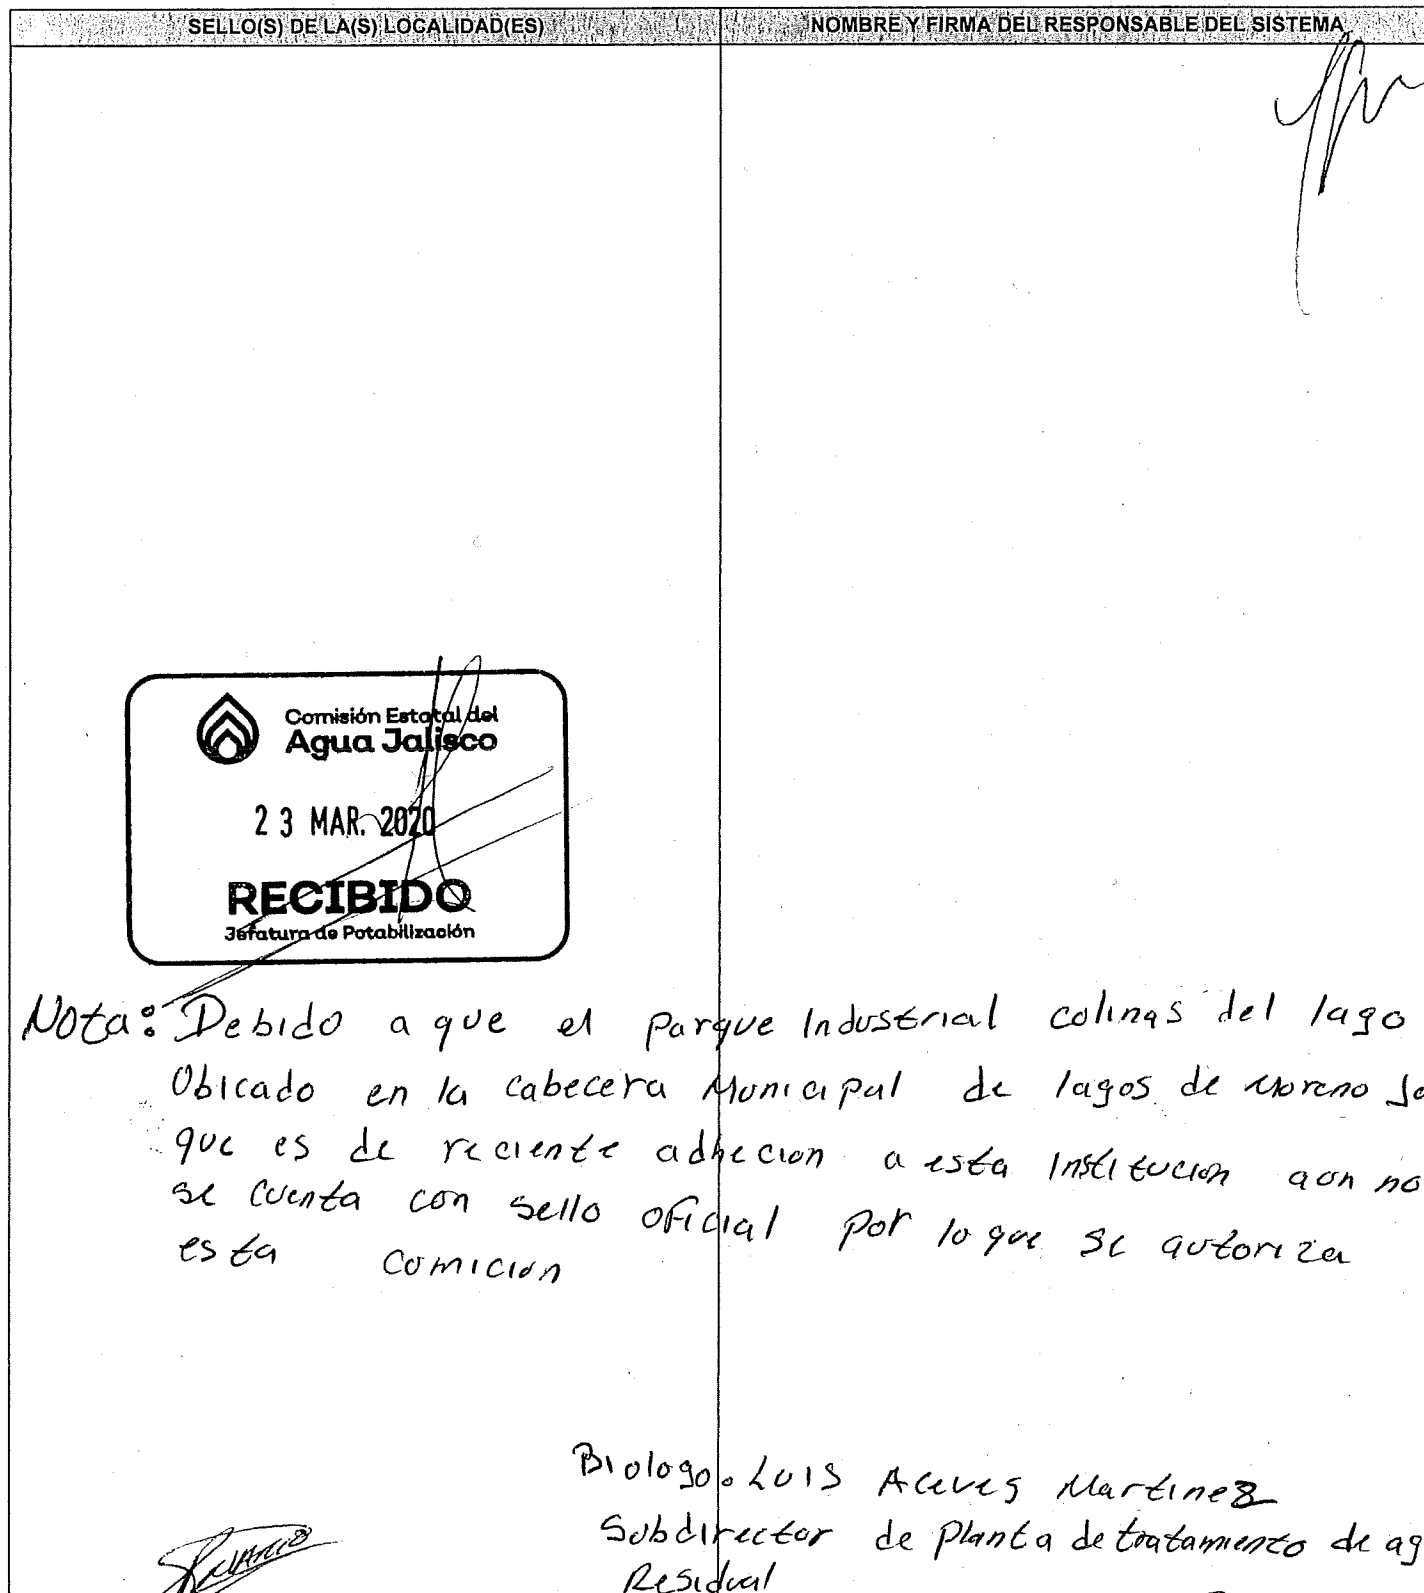 SELLO(S) DE LA(S) LOCALIDAD(ES) NOMBRE Y FIRMA DEL RESPONSABLE DEL SISTEMA
Comisión Estatal del
Agua Jalisco
23 MAR. 2020
RECIBIDO
Jefatura de Potabilización
Nota: Debido a que el parque Industrial colinas del lago
Obicado en la cabecera Municipal de lagos de Moreno Ja
que es de reciente adhecion a esta Institucion aon no
se cuenta con sello oficial por lo que se autoriza
esta comicion
Biologo. Luis Aceves Martinez
Subdirector de planta de tratamiento de ag
Residual